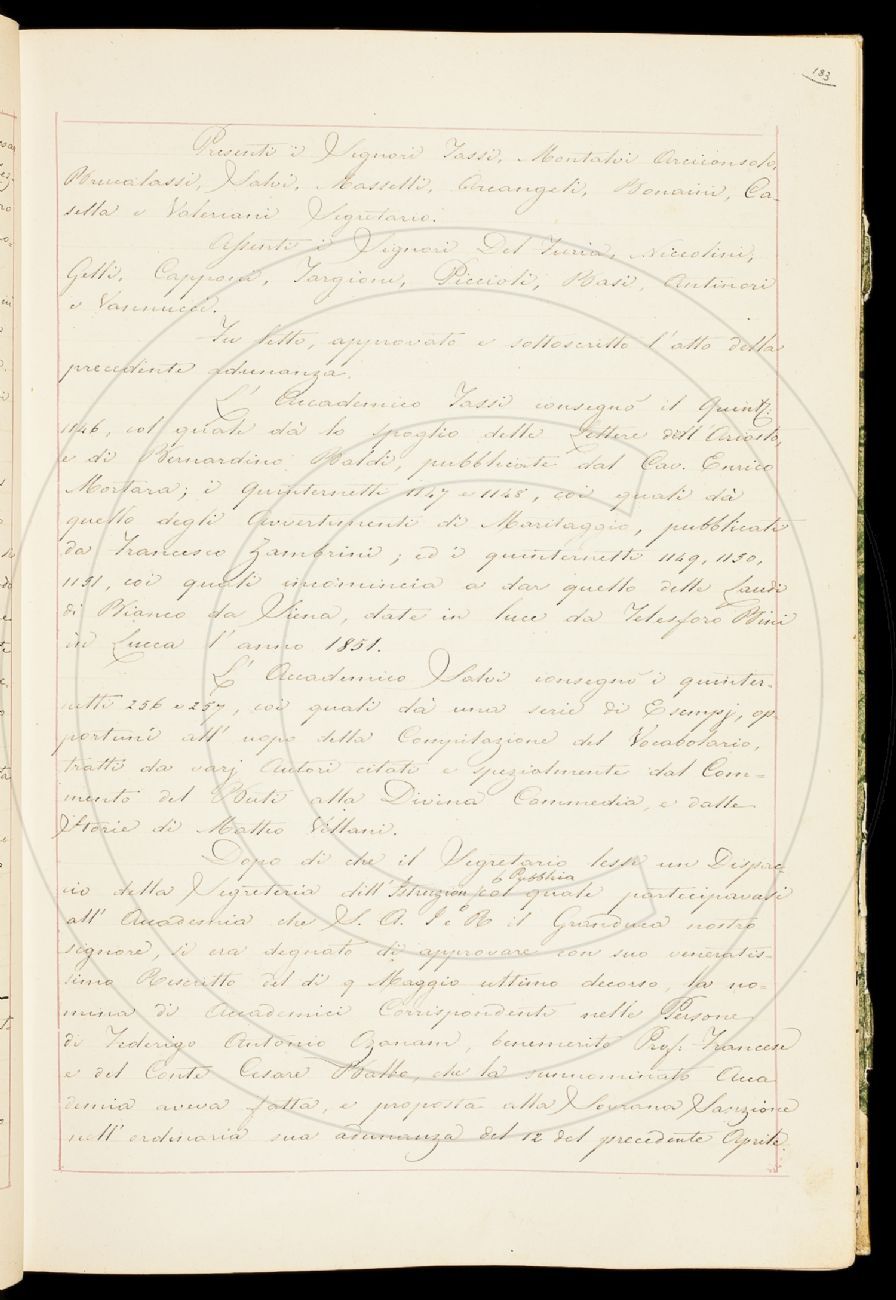 183
Presenti i Signori Tassi, Montalvi Arciconsolo,
Brucalassi, Salvi, Masselli, Arcangeli, Bonaini, Ca-
sella e Valeriani Segretario.
Assenti i Signori Del Furia, Niccolini,
Gelli, Capponi, Targioni, Piccioli, Basi, Antinori
e Vannucci.
Fu letto, approvato e sottoscritto l'atto della
precedente adunanza.
L'Accademico Tassi consegnò il Quint:
1146, col quale dà lo spoglio delle Lettere dell'Ariosto,
e di Bernardino Baldi, pubblicate dal Cav. Enrico
Mortara; i quinternetti 1147 e 1148, coi quali dà
quello degli Avvertimenti di Maritaggio, pubblicati
da Francesco Zambrini; ed i quinternetti 1149, 1150,
1151, coi quali incomincia a dar quello delle Laudi
di Bianco da Siena, date in luce da Telesforo Bini
in Lucca l'anno 1851.
L'Accademico Salvi consegnò i quinter-
netti 256 e 257, coi quali dà una serie di Esempj, op-
portuni all'uopo della Compilazione del Vocabolario,
tratti da varj Autori citati e spezialmente dal Com-
mento del Buti alla Divina Commedia, e dalle
Storie di Matteo Villani.
Dopo di che il Segretario lesse un Dispac-
cio della Segreteria dell'Istruzione Pubblica col quale partecipavasi
all'Accademia che S. A. I. e R. il Granduca nostro
signore, si era degnato di approvare con suo veneratis-
simo Rescritto del dì 9 Maggio ultimo decorso, la no-
mina di Accademici Corrispondenti nelle Persone
di Federigo Antonio Ozanam, benemerito Prof. Francese
e del Conte Cesare Balbo, che la summominata Acca
demia aveva fatta, e proposta alla Sovrana Sanzione
nell'ordinaria sua adunanza del 12 del precedente Aprile.